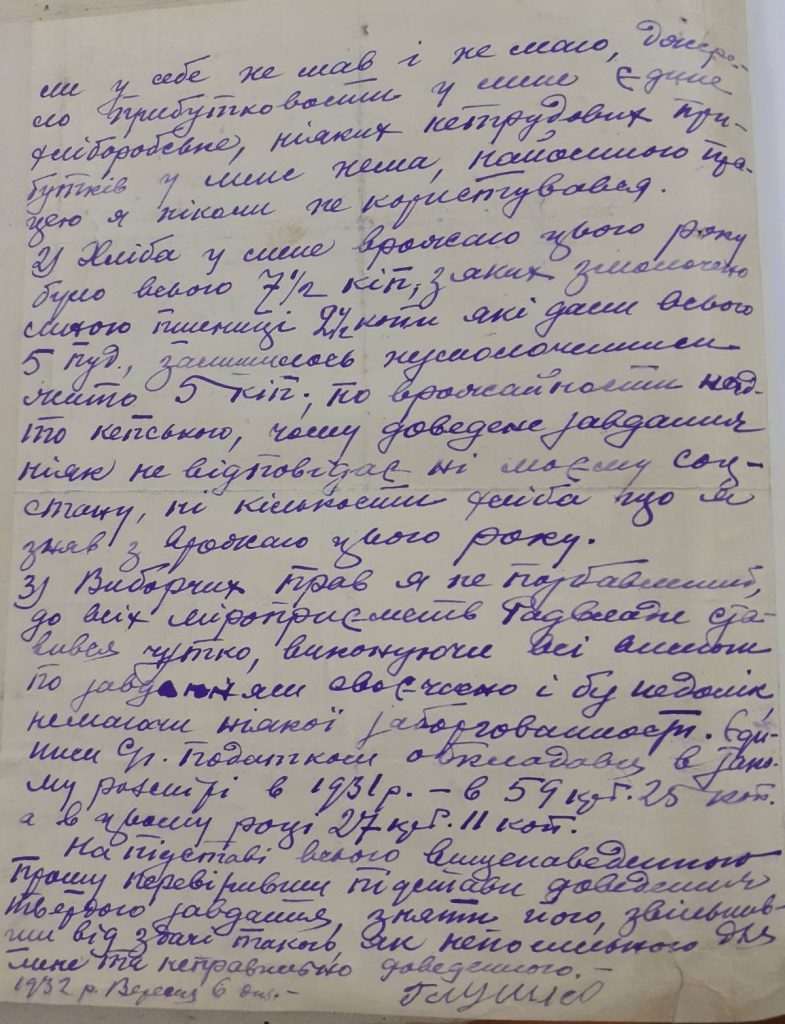 ми у себе не мав і не маю, джере-
ло прибутковости у мене єдине
хліборобське, ніяких нетрудових при-
бутків у мене нема, найомною пра-
цею я ніколи не користувався.
2) Хліба у мене врожаю цього року
було всього 7½ кіп, з яких змолочено
сихою пшениці 2½ копи які дали всього
5 пуд., залишилось
жито 5 кіп., по врожайности над-
то кепського, чому доведене завдання
ніяк не відповідає ні моєму соц-
стану, ні кількости хліба що я
зняв з врожаю цього року.
3) Виборчих прав я не позбавлений,
до всіх міроприємств Радвлади ста-
вився чутко, виконуючи всі вимоги
по завданням своєчасно і бу недоїмік
немаючи ніякої заборгованности. Єди-
ним Ср. податком обкладавсь в
му розмірі в 1931 р. – в 59 крб. 25 коп.
а в цьому році 27 крб. 11 коп.
На підставі всього вищенаведенного
прошу перевіривши підстави доведення
твердого завдання, зняти його, звільнив-
ши від здачі такого, як непосильного для
мене та неправильно доведенного. –
1932 р. Вересня 6 дня. –